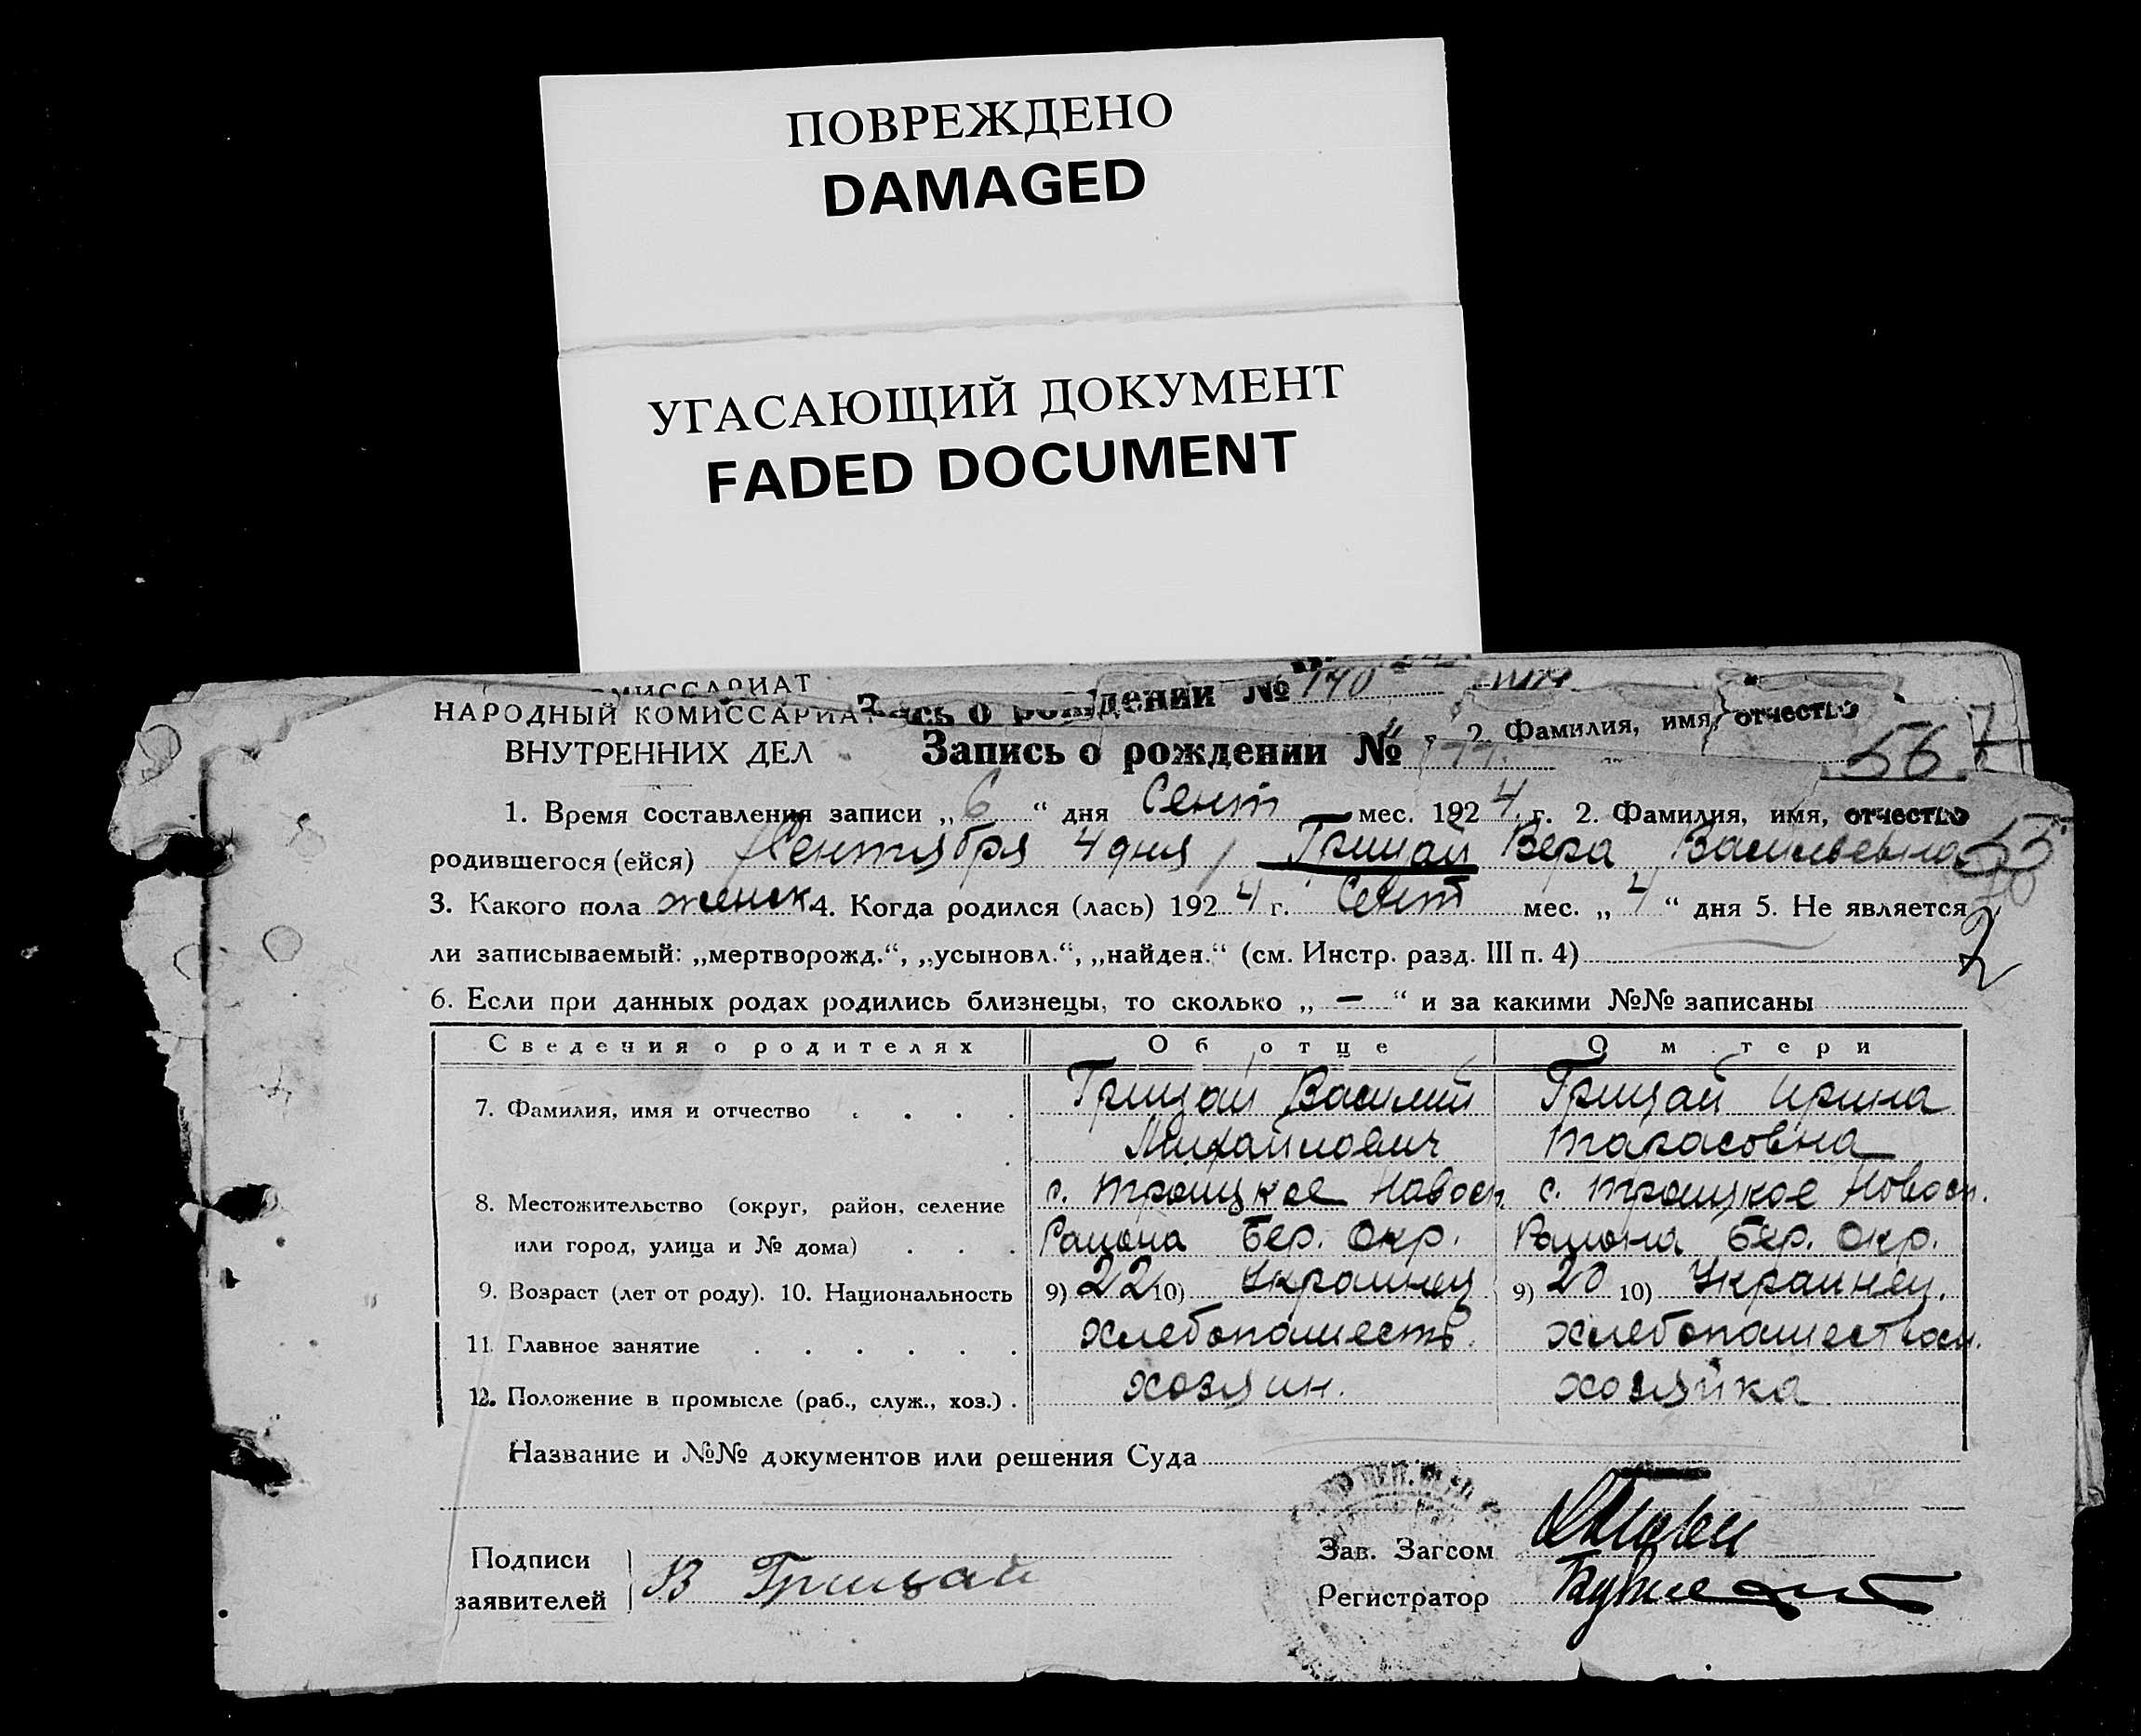 ПОВРЕЖДЕНО
DAMAGED
УГАСАЮЩИЙ ДОКУМЕНТ
FADED DOCUMENT
о рождении № 170
2. Фамилия, имя, отчество
56
НАРОДНЫЙ КОМИССАРИАТ
ВНУТРЕННИХ ДЕЛ
Запись о рождении №
1. Время составления записи „ 6 “ дня Сент мес. 1924 г. 2. Фамилия, имя, отчество
родившегося (ейся) Сентября 4 дня, Грицай Вера Васильевна 55
3. Какого пола женск 4. Когда родился (лась) 1924 г. Сент мес. „ 4 “ дня 5. Не является
ли записываемый: „мертворожд.“, „усыновл.“, „найден.“ (см. Инстр. разд. III п. 4) 2
6. Если при данных родах родились близнецы, то сколько „ — “ и за какими №№ записаны
Сведения о родителях Об отце О м тери
7. Фамилия, имя и отчество . . . . Грицай Василий Грицай Ирина
Михайлович Тарасовна
8. Местожительство (округ, район, селение с. Троицкое Новосп. с. Троицкое Новосп.
или город, улица и № дома) . . . Района Бер. Окр. Района Бер. Окр.
9. Возраст (лет от роду). 10. Национальность 9) 22 10) Украинец 9) 20 10) Украинец.
11. Главное занятие . . . . . . хлебопашеств. хлебопашеством.
12. Положение в промысле (раб., служ., хоз.) . хозяин. хозяйка
Название и №№ документов или решения Суда
Подписи
заявителей В Грицай
Зав. Загсом
Регистратор